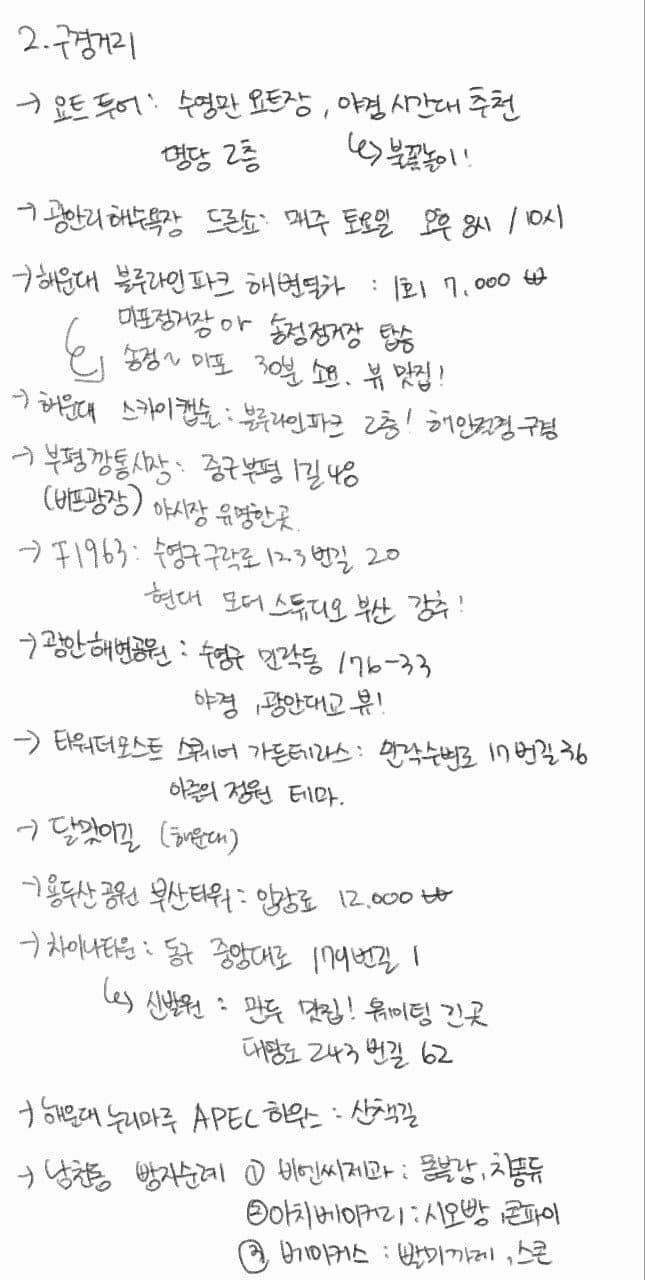 2. 구경거리
→ 요트 투어 : 수영만 요트장, 야경 시간대 추천
명당 2층 ↳ 불꽃놀이!
→ 광안리해수욕장 드론쇼 : 매주 토요일 오후 8시 / 10시
→ 해운대 블루라인파크 해변열차 : 1회 7,000 ₩
미포정거장 or 송정정거장 탑승
송정~미포 30분 소요. 뷰 맛집!
→ 해운대 스카이캡슐 : 블루라인파크 2층! 해안절경 구경
→ 부평깡통시장 : 중구 부평1길 48
(비프광장) 야시장 유명한곳.
→ F1963 : 수영구 구락로 123번길 20
현대 모터스튜디오 부산 강추!
→ 광안해변공원 : 수영구 민락동 176-33
야경, 광안대교 뷰!
→ 타워더모스트 스퀘어 가든테라스 : 민락수변로 17번길 36
정원 테마.
→ 달맞이길 (해운대)
→ 용두산공원 부산타워 : 입장료 12,000 ₩
→ 차이나타운 : 동구 중앙대로 179번길 1
↳ 신발원 : 만두 맛집! 웨이팅 긴곳
대영로 243번길 62
→ 해운대 누리마루 APEC 하우스 : 산책길
→ 남천동 빵지순례 ① 비엔씨제과 : 몽블랑, 치퐁듀
② 아치베이커리 : 시오빵, 콘파이
③ 베이커스 : 발미까레, 스콘